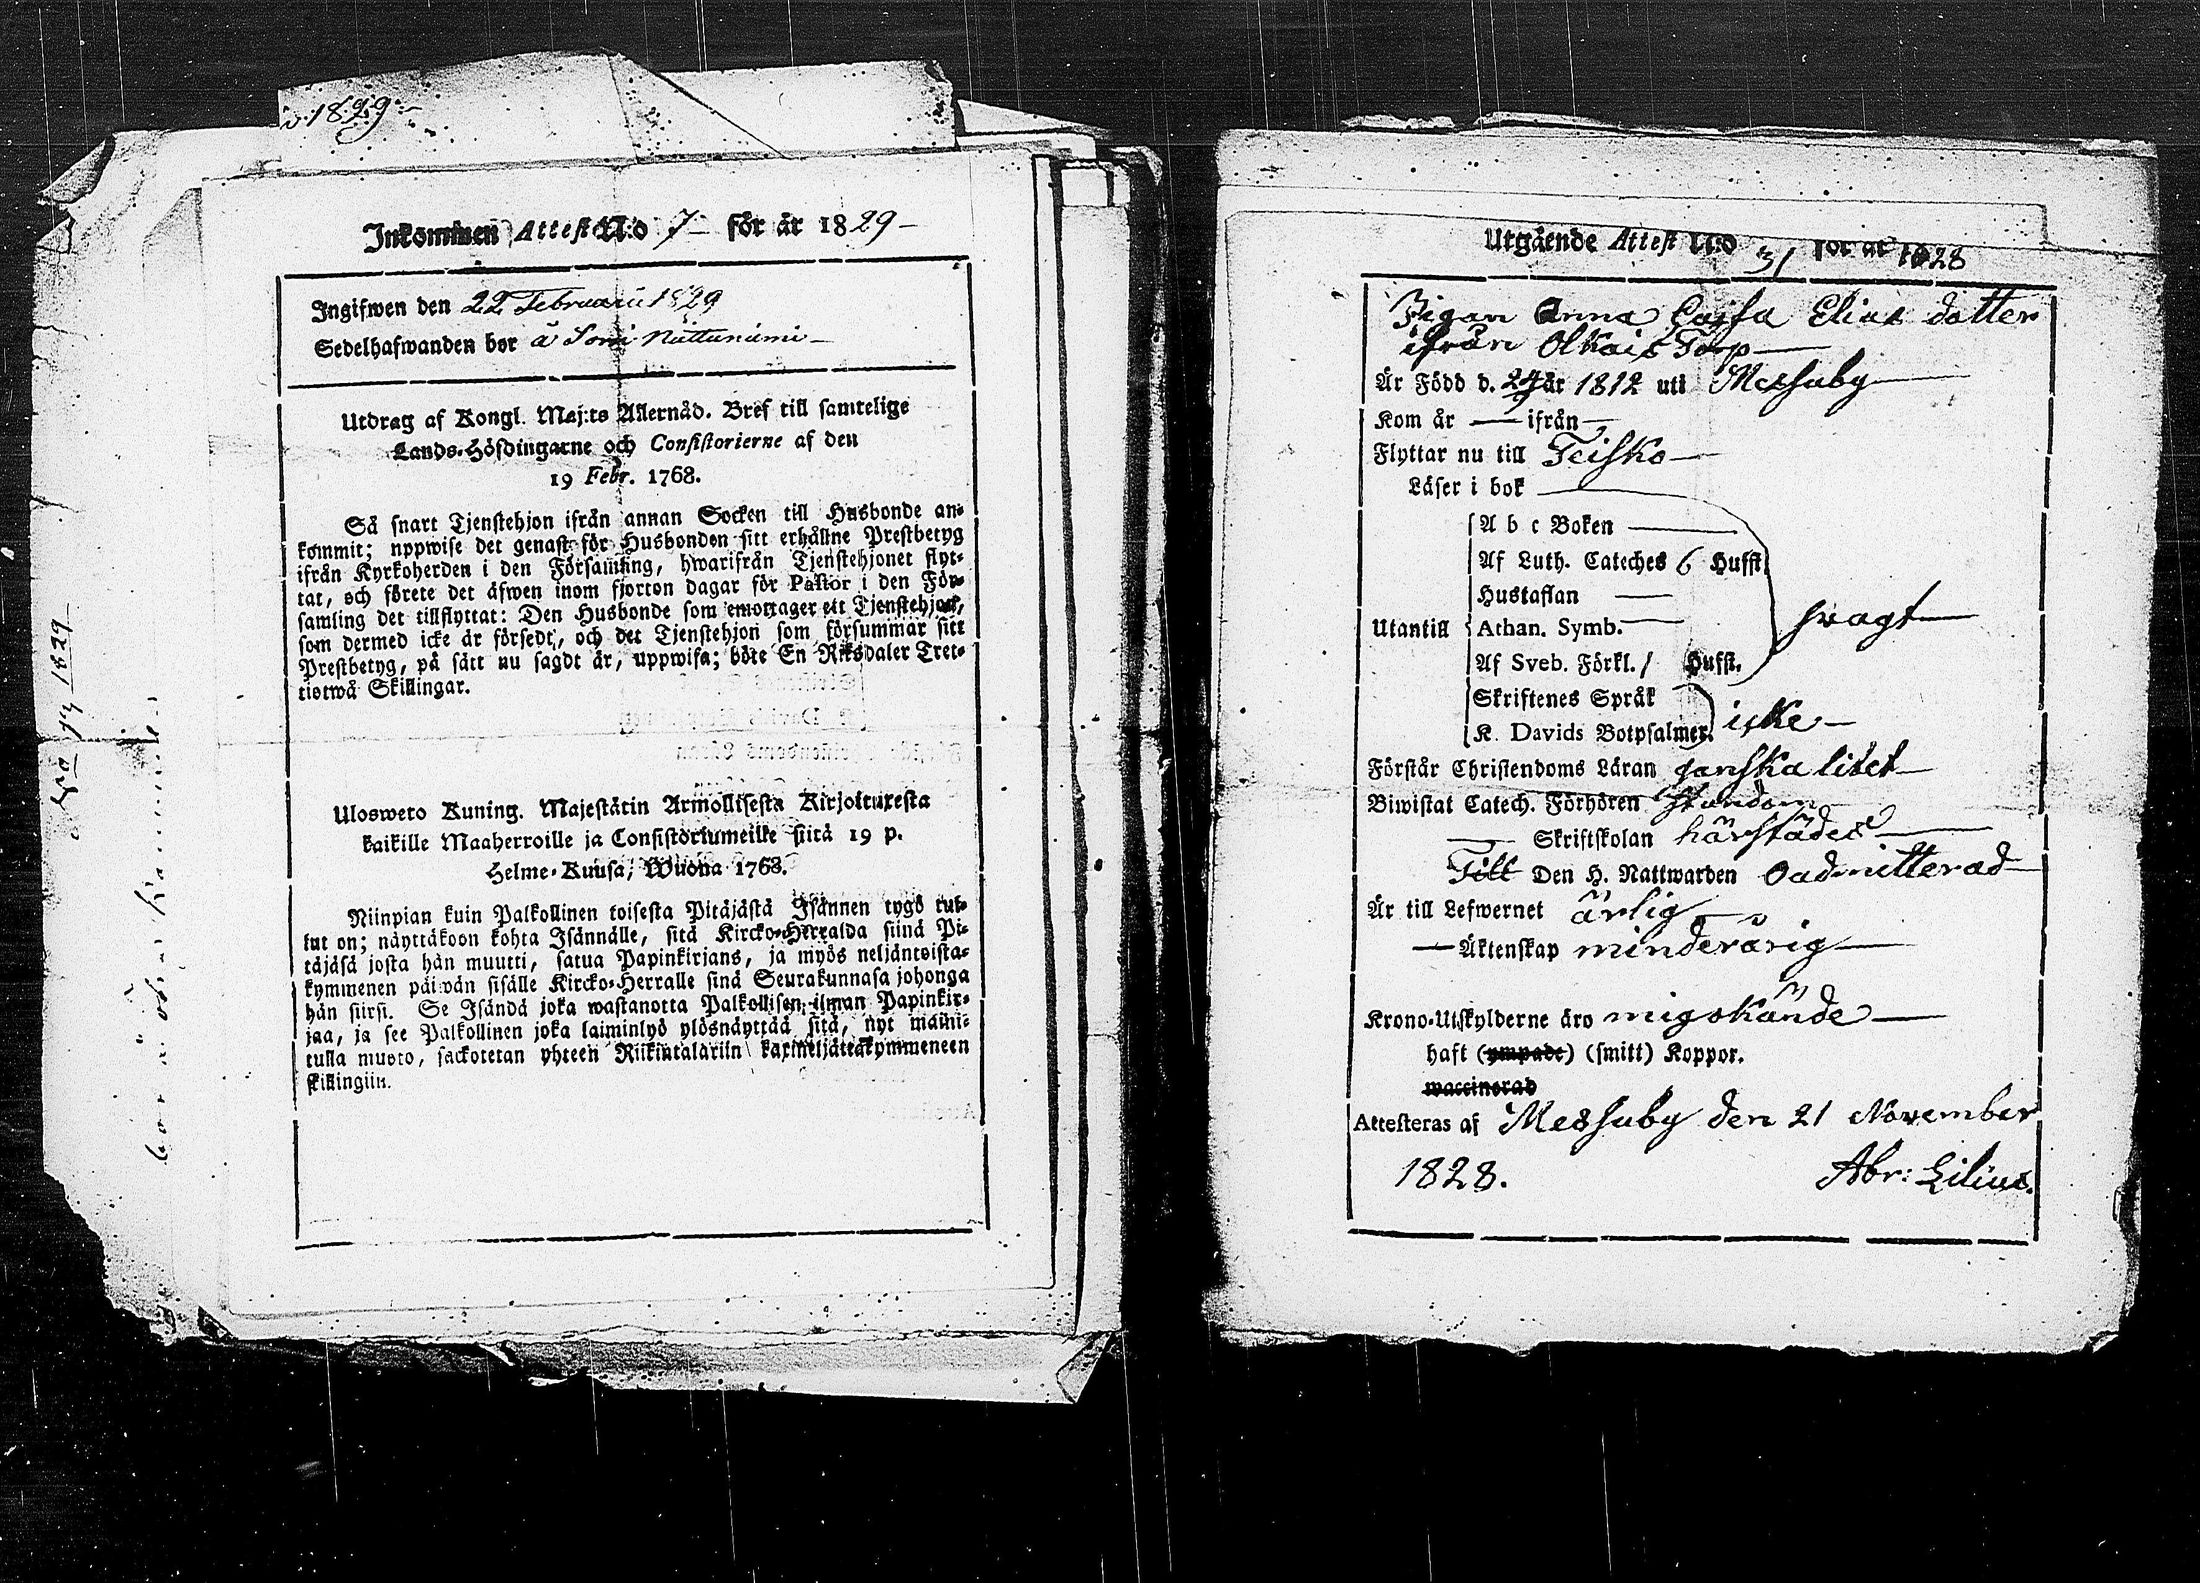 1829
Inkommen Attest N:o 7 för år 1829
Ingifwen den 22 Februarii 1829
Sedelhafwanden bor å
Utdrag af Kongl. Maj:ts Allernåd. Bref till samtelige
Lands-Höfdingarne och Consistorierne af den
19 Febr. 1768.
Så snart Tjenstehjon ifrån annan Socken till Husbonde an-
kommit; uppwise det genast för Husbonden sitt erhållne Prestbetyg
ifrån Kyrkoherden i den Församling, hwarifrån Tjenstehjonet flyt-
tat, och förete det äfwen inom fjorton dagar för Pastor i den För-
samling det tillflyttat: Den Husbonde som emottager ett Tjenstehjon,
som dermed icke är försedt, och det Tjenstehjon som försummar sitt
Prestbetyg, på sätt nu sagdt är, uppwisa; böte En Riksdaler Tret-
tiotwå Skillingar.
Ulosweto Kuning. Majestätin Armollisesta Kirjoituxesta
kaikille Maaherroille ja Consistoriumeille siitä 19 p.
Helme-Kuusa, Wuona 1768.
Niinpian kuin Palkollinen toisesta Pitäjästä Isännen tygö tul-
lut on; näyttäkoon kohta Isännälle, sitä Kircko-Herralda siinä Pi-
täjäsä josta hän muutti, satua Papinkirjans, ja myös neljäntoista-
kymmenen päiwän sisälle Kircko-Herralle sinä Seurakunnasa johonga
hän siirsi. Se Isändä joka wastanotta Palkollisen ilman Papinkir-
jaa, ja see Palkollinen joka laiminlyö ylösnäyttää sitä, nyt maini-
tulla muoto, sackotetan yhteen Riikintalariin kaxineljättäkymmeneen
skillingiin.
1829
Utgående Attest N:o 31 för år 1828
Pigan Anna Cajsa Elias dotter
ifrån Olkais Torp
Är Född d. 24/9 år 1812 uti Messuby
Kom år — ifrån —
Flyttar nu till Teisko
Läser i bok —
A b c Boken —
Af Luth. Cateches 6 Hufst.
Hustaflan —
Utantill Athan. Symb. — swagt
Af Sveb. Förkl. 1 Hufst.
Skriftenes Språk
K. Davids Botpsalmer. icke
Förstår Christendoms Läran ganska litet
Biwistat Catech. Förhören stundom
— Skriftskolan härstädes
Till Den H. Nattwarden Oadmitterad
Är till Lefwernet ärlig
— Äktenskap minderårig
Krono-Utskylderne äro mig okände
haft (ympade) (smitt) Koppor.
waccinerad
Attesteras af Messuby den 21 November
1828. Abr: Lilius.